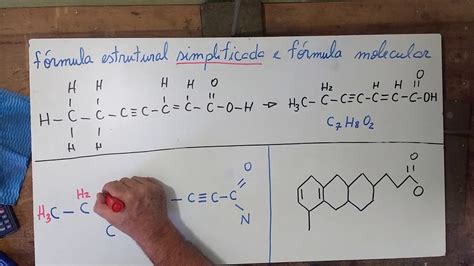 fórmula estrutural simplificada e fórmula molecular
H H H H O
H-C-C-C≡C-C=C-C-O-H → H₃C-C-C≡C-C=C-C-OH
H₂ H H O
H H
C₇H₈O₂
H₃C-C H₂ C -C≡C-C O N
O O